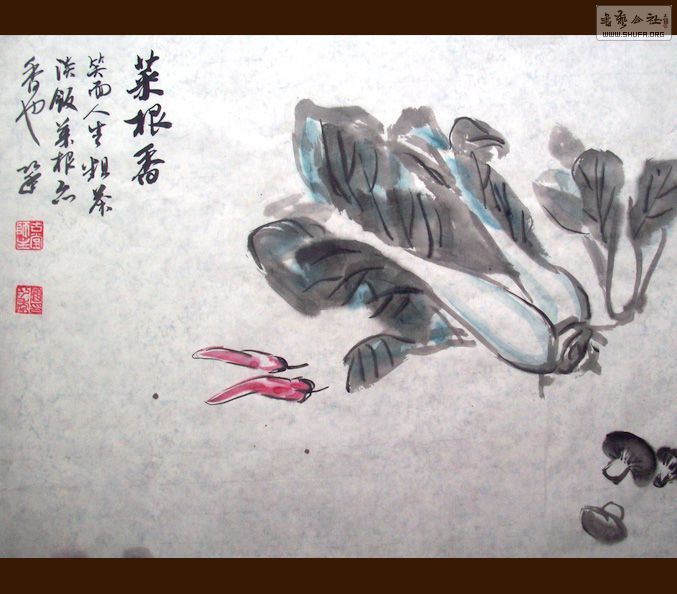 菜根香
笑面人生粗茶
淡饭菜根亦
香也
書藝公社
WWW.SHUFA.ORG